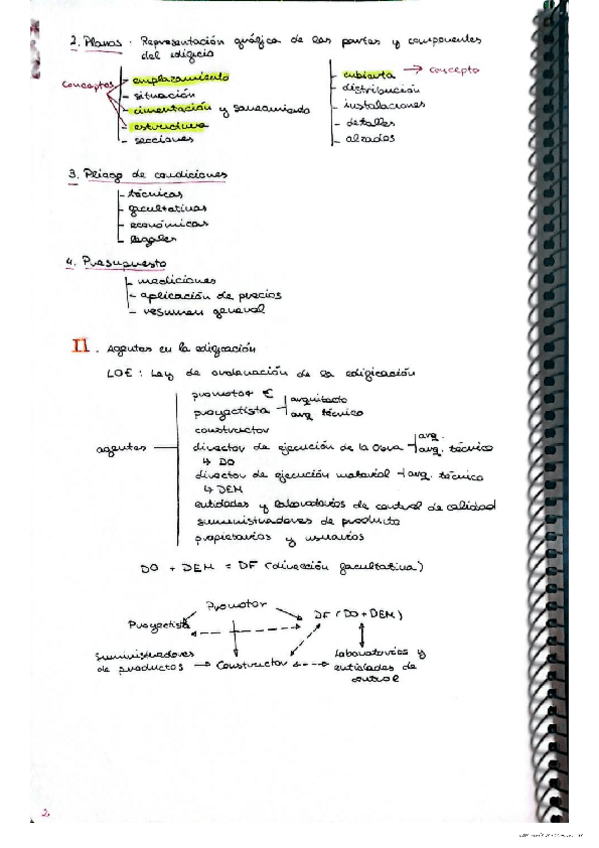 2. Planos : Representación gráfica de las partes y componentes
del edificio
conceptos
- emplazamiento
- situación
- cimentación y saneamiento
- estructura
- secciones
- cubierta → concepto
- distribución
- instalaciones
- detalles
- alzados
3. Pliego de condiciones
- técnicas
- facultativas
- económicas
- legales
4. Presupuesto
- mediciones
- aplicación de precios
- resumen general
II. Agentes en la edificación
LOE : Ley de ordenación de la edificación
agentes
promotor €
proyectista
arquitecto
arq técnico
constructor
director de ejecución de la obra
arq.
arq. técnico
↳ DO
director de ejecución material - arq. técnico
↳ DEM
entidades y laboratorios de control de calidad
suministradores de producto
propietarios y usuarios
DO + DEM = DF (dirección facultativa)
Promotor
Proyectista
DF (DO + DEM)
suministradores
de productos → Constructor
Laboratorios y
entidades de
control
2